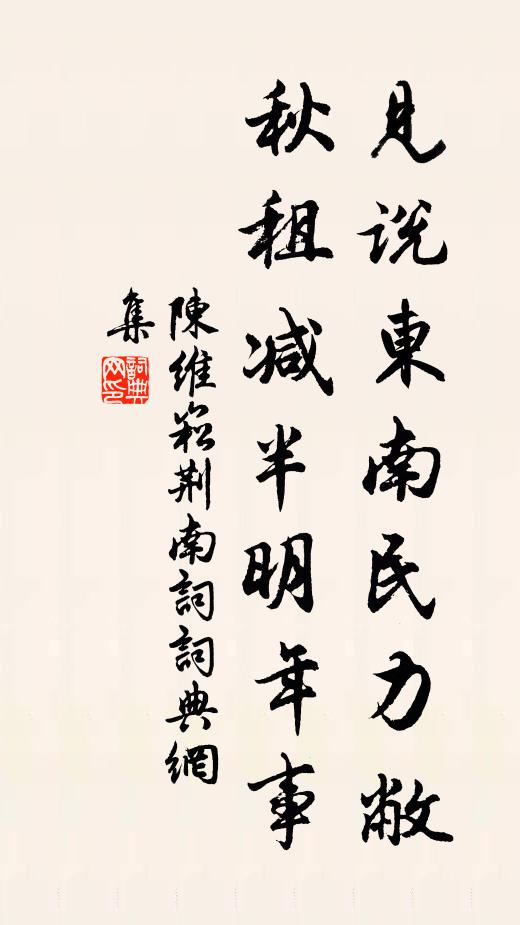 見説東南民力敝
秋租减半明年事
陳維崧荆南詞詞典網
集
詞典
网印